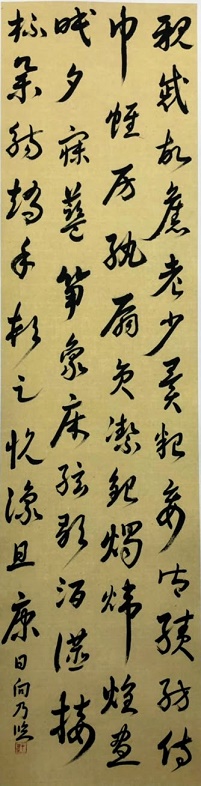 親戚故舊老少異粮妾御績紡侍
巾帷房紈扇員潔銀燭煒煌晝
眠夕寐藍筍象床絃歌酒讌接
杯舉觴矯手頓足悅豫且康日向乃